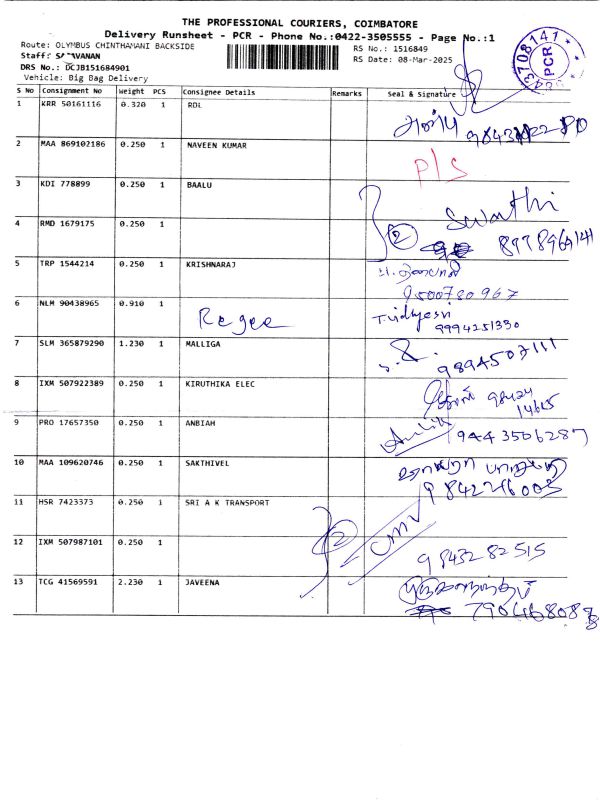 THE PROFESSIONAL COURIERS, COIMBATORE
Delivery Runsheet - PCR - Phone No.:0422-3505555 - Page No.:1
Route: OLYMBUS CHINTHAMANI BACKSIDE
RS No.: 1516849
RS Date: 08-Mar-2025
DRS No.: DCJB151684901
Vehicle: Big Bag Delivery
PCR
S No Consignment No Weight PCS Consignee Details Remarks Seal & Signature
1 KRR 50161116 0.320 1 RDL
2 MAA 869102186 0.250 1 NAVEEN KUMAR P/S
3 KDI 778899 0.250 1 BAALU Swathi
4 RMD 1679175 0.250 1 2 8978969141
5 TRP 1544214 0.250 1 KRISHNARAJ
9500780967
6 NLM 90438965 0.910 1 Regee
9994251330
7 SLM 365879290 1.230 1 MALLIGA 9894507111
8 IXM 507922389 0.250 1 KIRUTHIKA ELEC
9 PRO 17657350 0.250 1 ANBIAH 9443506287
10 MAA 109620746 0.250 1 SAKTHIVEL
11 HSR 7423373 0.250 1 SRI A K TRANSPORT
12 IXM 507987101 0.250 1 2 9843282515
13 TCG 41569591 2.230 1 JAVEENA